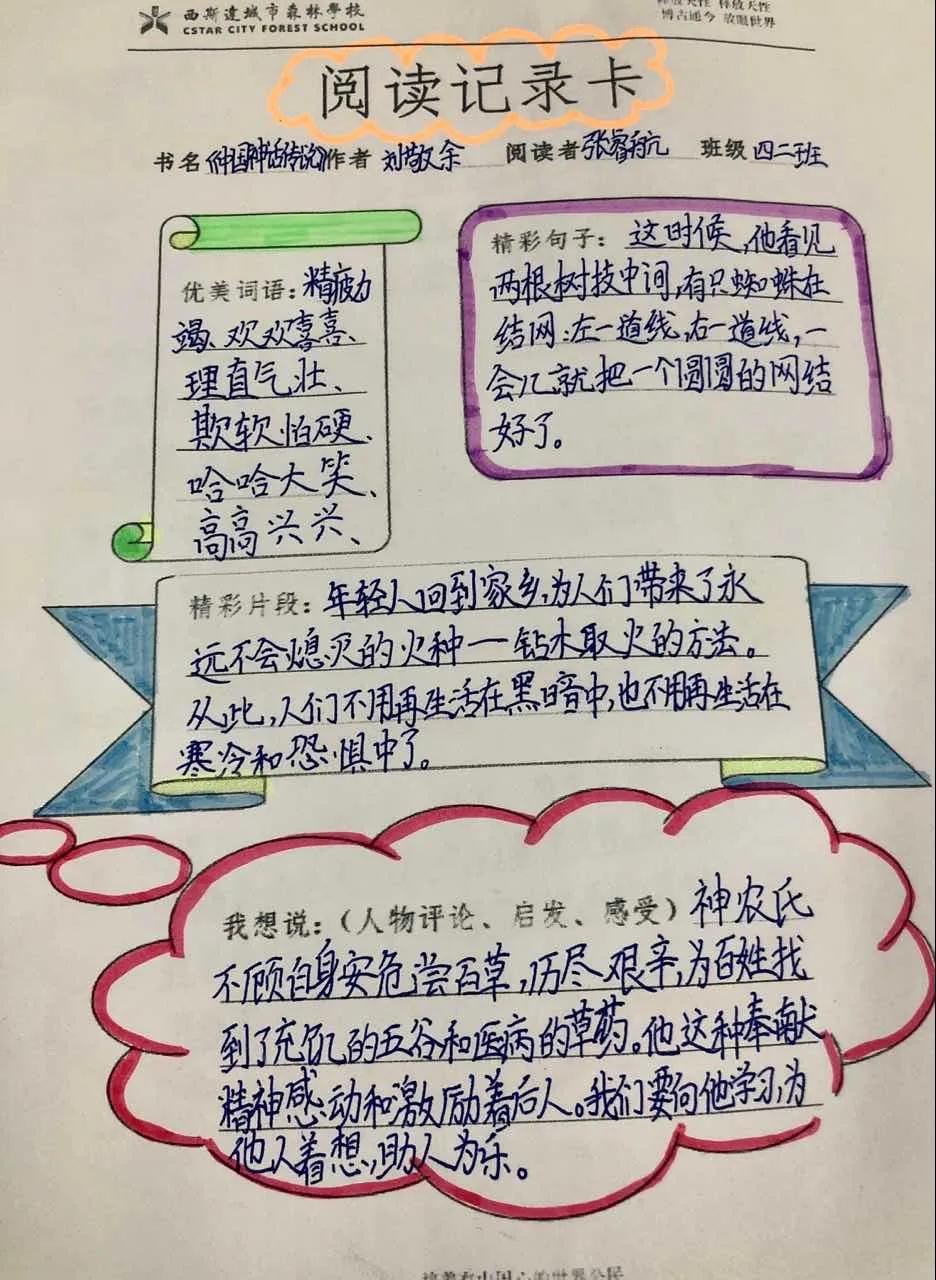 西斯达城市森林學校
CSTAR CITY FOREST SCHOOL
释放天性 释放天性
博古通今 放眼世界
阅读记录卡
书名《中国神话传说》作者 刘敬余 阅读者 张睿航 班级 四二班
优美词语：精疲力
竭、欢欢喜喜、
理直气壮、
欺软怕硬、
哈哈大笑、
高高兴兴、
精彩句子：这时候，他看见
两根树技中间，有只蜘蛛在
结网：左一道线，右一道线，一
会儿就把一个圆圆的网结
好了。
精彩片段：年轻人回到家乡，为人们带来了永
远不会熄灭的火种一钻木取火的方法。
从此，人们不用再生活在黑暗中，也不用再生活在
寒冷和恐惧中了。
我想说：（人物评论、启发、感受）神农氏
不顾自身安危尝百草，历尽艰辛，为百姓找
到了充饥的五谷和医病的草药。他这种奉献
精神感动和激励着后人。我们要向他学习，为
他人着想，助人为乐。